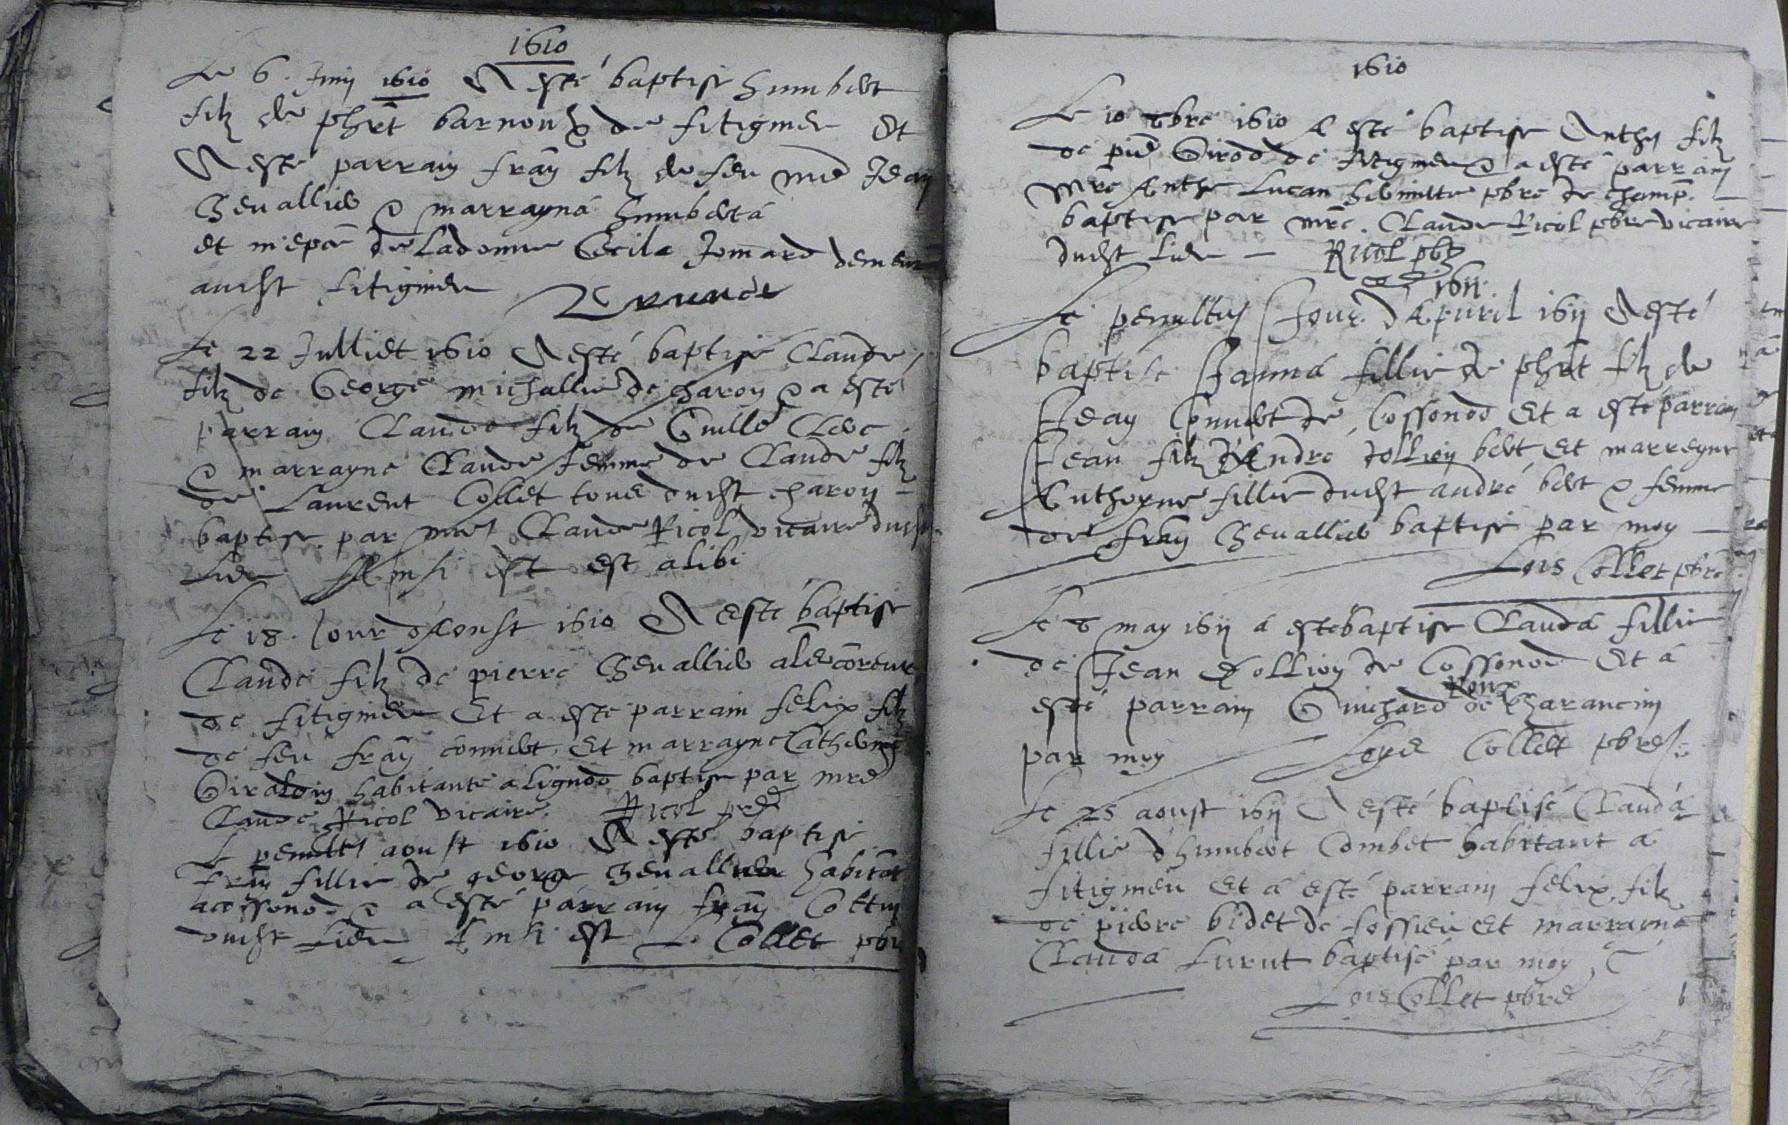 1610
Le 6. Juin 1610 A esté baptise humbert
filz de phŕt barnoux de fitignieu Et
A esté parrain frañ filz de feu mre Jean
Chevallier & marrayna humberta
Cecile demeur
audst fitignieu
Le 22 Julliet 1610 A esté baptisé Claude
filz de George michallie de charon & a esté
parrain Claude filz de Guille Clerc
& marrayne Claude femme de Claude filz
de Laurent Collet tous dudst charon
baptise par mre Claude Ricol vicaire dudst
Lieu est est alibi
Le 18. Jour d'Aoust 1610 A esté baptise
Claude filz de pierre Chevallier
de fitignieu Et a esté parrain felix filz
de feu frañ convert Et marrayne Catherine
habitante a lignod baptise par mre
Claude Ricol vicaire. Ricol
Le penult aoust 1610 A esté baptise
fillie de george Chevallier habitant
acossonod & a esté parrain frañ
dudst Lieu est L. Collet pbr
1610
Le 10 1610 A esté baptise Anthe filz
de Girod de fitignieu & a esté parrain
Mre Anthe pbre de champ.
baptise par mre. Claude Ricol pbre vicaire
dudst Lieu — Ricol pbr
1611
Le penultie Jour d'Apuril 1611 A esté
baptise Janna fillie de phŕt filz de
Jean Convert de Cossonod Et a esté parrain
Jean filz d'Andre dollion bert Et marregne
Anthoyne fillie dudst andré bert & femme
de frañ Chevallier baptise par moy —
Lois Collet pbre
Le 8 may 1611 a esté baptise Clauda fillie
de Jean dollion de Cossonod Et a
Roux
esté parrain Guichard de Charancin
par moy Loys Collet pbre
Le 25 aoust 1611 A esté baptisé Clauda
fillie d'humbert Combet habitant a
fitignieu Et a esté parrain felix filz
de pierre bidet de fossieu Et marrayna
Clauda Lurut baptisé par moy
Lois Collet pbre